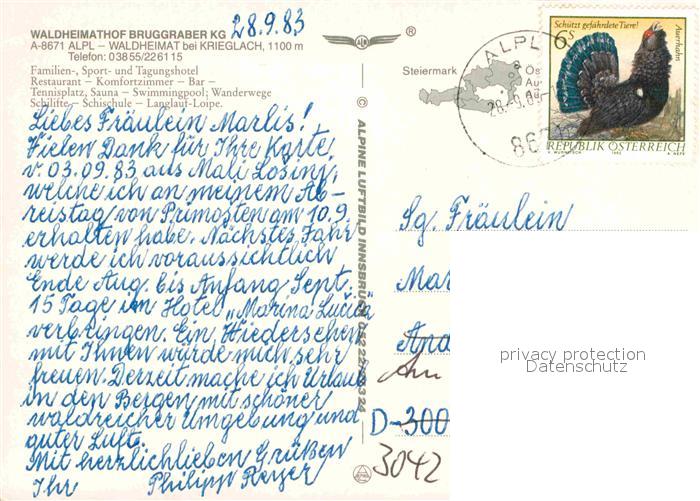 WALDHEIMATHOF BRUGGRABER KG
28.9.83
A-8671 ALPL – WALDHEIMAT bei KRIEGLACH, 1100 m
Telefon: 03855/226115
Familien-, Sport- und Tagungshotel
Restaurant – Komfortzimmer – Bar –
Tennisplatz, Sauna – Swimmingpool; Wanderwege
Schilifte – Schischule – Langlauf-Loipe.
Liebes Fräulein Marlis!
Vielen Dank für Ihre Karte
v. 03.09.83 aus Mali Losinj,
welche ich an meinem Ab-
reistag von Primosten am 10.9.
erhalten habe. Nächstes Jahr
werde ich voraussichtlich
Ende Aug. bis Anfang Sept.
15 Tage im Hotel „Marina Lučica"
verbringen. Ein Wiedersehen
mit Ihnen würde mich sehr
freuen. Derzeit mache ich Urlaub
in den Bergen mit schöner
waldreicher Umgebung und
guter Luft.
Mit herzlichlieben Grüßen
Ihr Philipp
© ALPINE LUFTBILD INNSBRUCK
®
Steiermark
ALPL
28.-9.
867
Schützt gefährdete Tiere!
Auerhahn
6S
REPUBLIK ÖSTERREICH
1982
Sg. Fräulein
Mar
And
Am
D-300
3042
privacy protection
Datenschutz